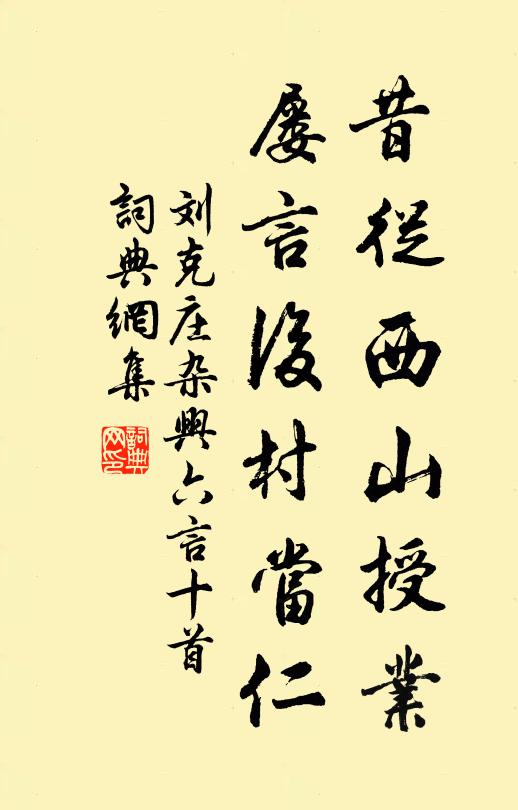 昔從西山授業
屡言後村當仁
刘克庄杂興六言十首
詞典網集
詞典网印